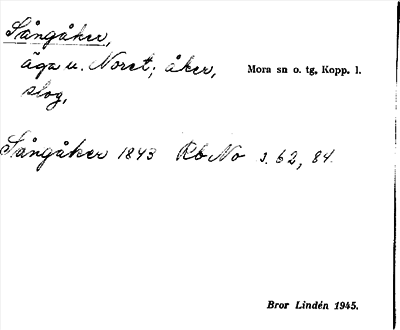 Långåker,
äga u. Noret; åker, Mora sn o. tg, Kopp. l.
slog,
Långåker 1843 Rb No s. 62, 84.
Bror Lindén 1945.